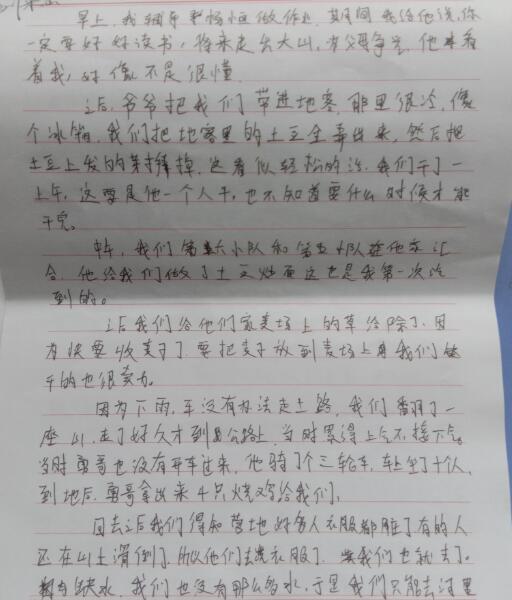 早上，我辅导李畅恒做作业，其间我给他说，你
一定要好好读书，将来走出大山，为父母争光，他看
着我，好像不是很懂．
之后，爷爷把我们带进地窖，那里很冷，像
个冰箱，我们把地窖里的土豆全弄出来，然后把
土豆上发的芽掰掉，这看似轻松的活，我们干了一
上午，这要是他一个人干，也不知道要什么时候才能
干完。
中午，我们第六小队和第五小队在他家汇
合，他给我们做了土豆灿面这也是我第一次吃
到的。
之后我们给他们家麦场上的草给除了，因
为快要收麦子了，要把麦子放到麦场上，我们
干的也很卖力。
因为下雨，车没有办法走土路，我们翻了一
座山，走了好久才到公路上，当时累得上气不接下气。
当时勇哥也没有开车过来，他骑了个三轮车，车上坐了十几人，
到地后，勇哥拿出来4只烧鸡给我们，
回去之后我们得知营地好多人衣服都脏了有的人
还在山上滑倒了，所以他们去洗衣服了，我们也就去了。
因为缺水，我们也没有那么多水，于是我们只能去河里